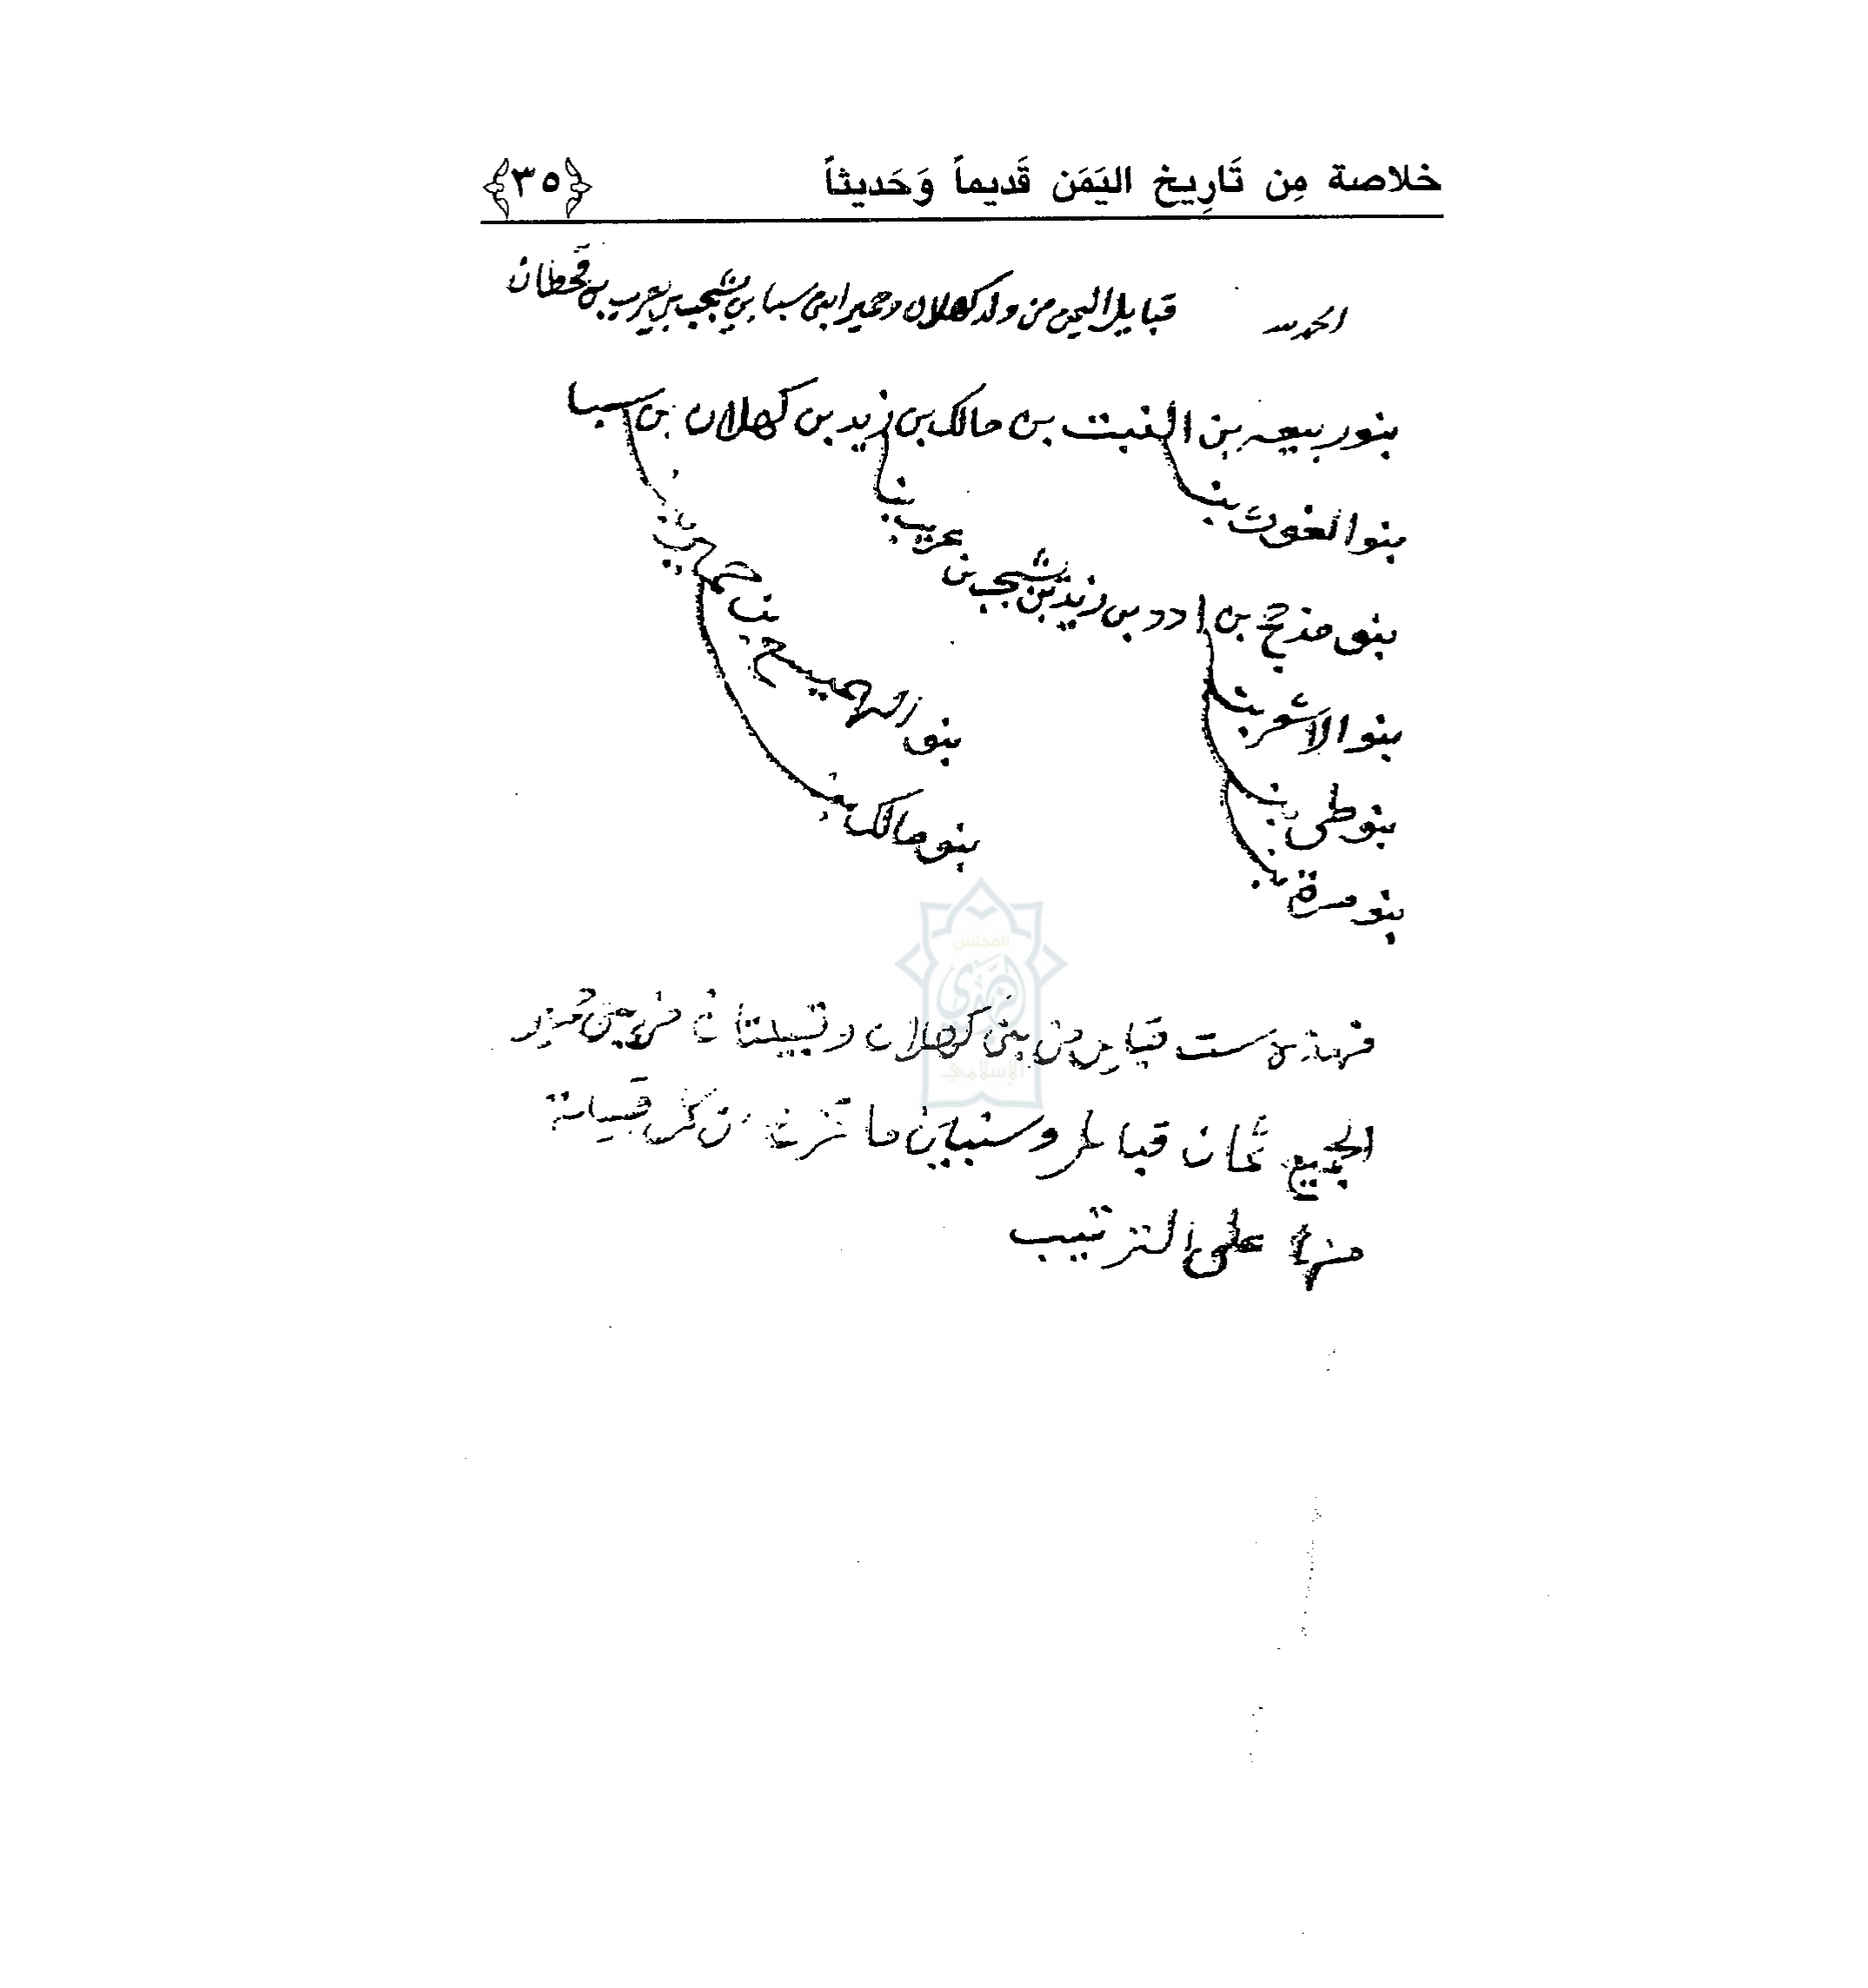 خلاصة مِن تَارِيخ اليَمَن قَديماً وَحَديثاً ﴿٣٥﴾
الحمد لله قبايل اليمن من ولد كهلان وحمير ابني سبا بن يشجب بن يعرب بن قحطان
بنو ربيعه بن النبت بن مالك بن زيد بن كهلان بن سبا
بنو الغوث بن
بنو مذحج بن ادد بن زيد بن يشجب بن عريب بن
بنو الاشعر بن
بنو طي بن
بنو مرة بن
بنو الهميسع بن حمير بن
بنو مالك بن
فهذه ست قبايل من بني كهلان وقبيلتان من حمير
الجميع ثمان قبايل وسنبين ما تفرع من كل قبيلة
منها على الترتيب
المجلس
الزيدي
الإسلامي